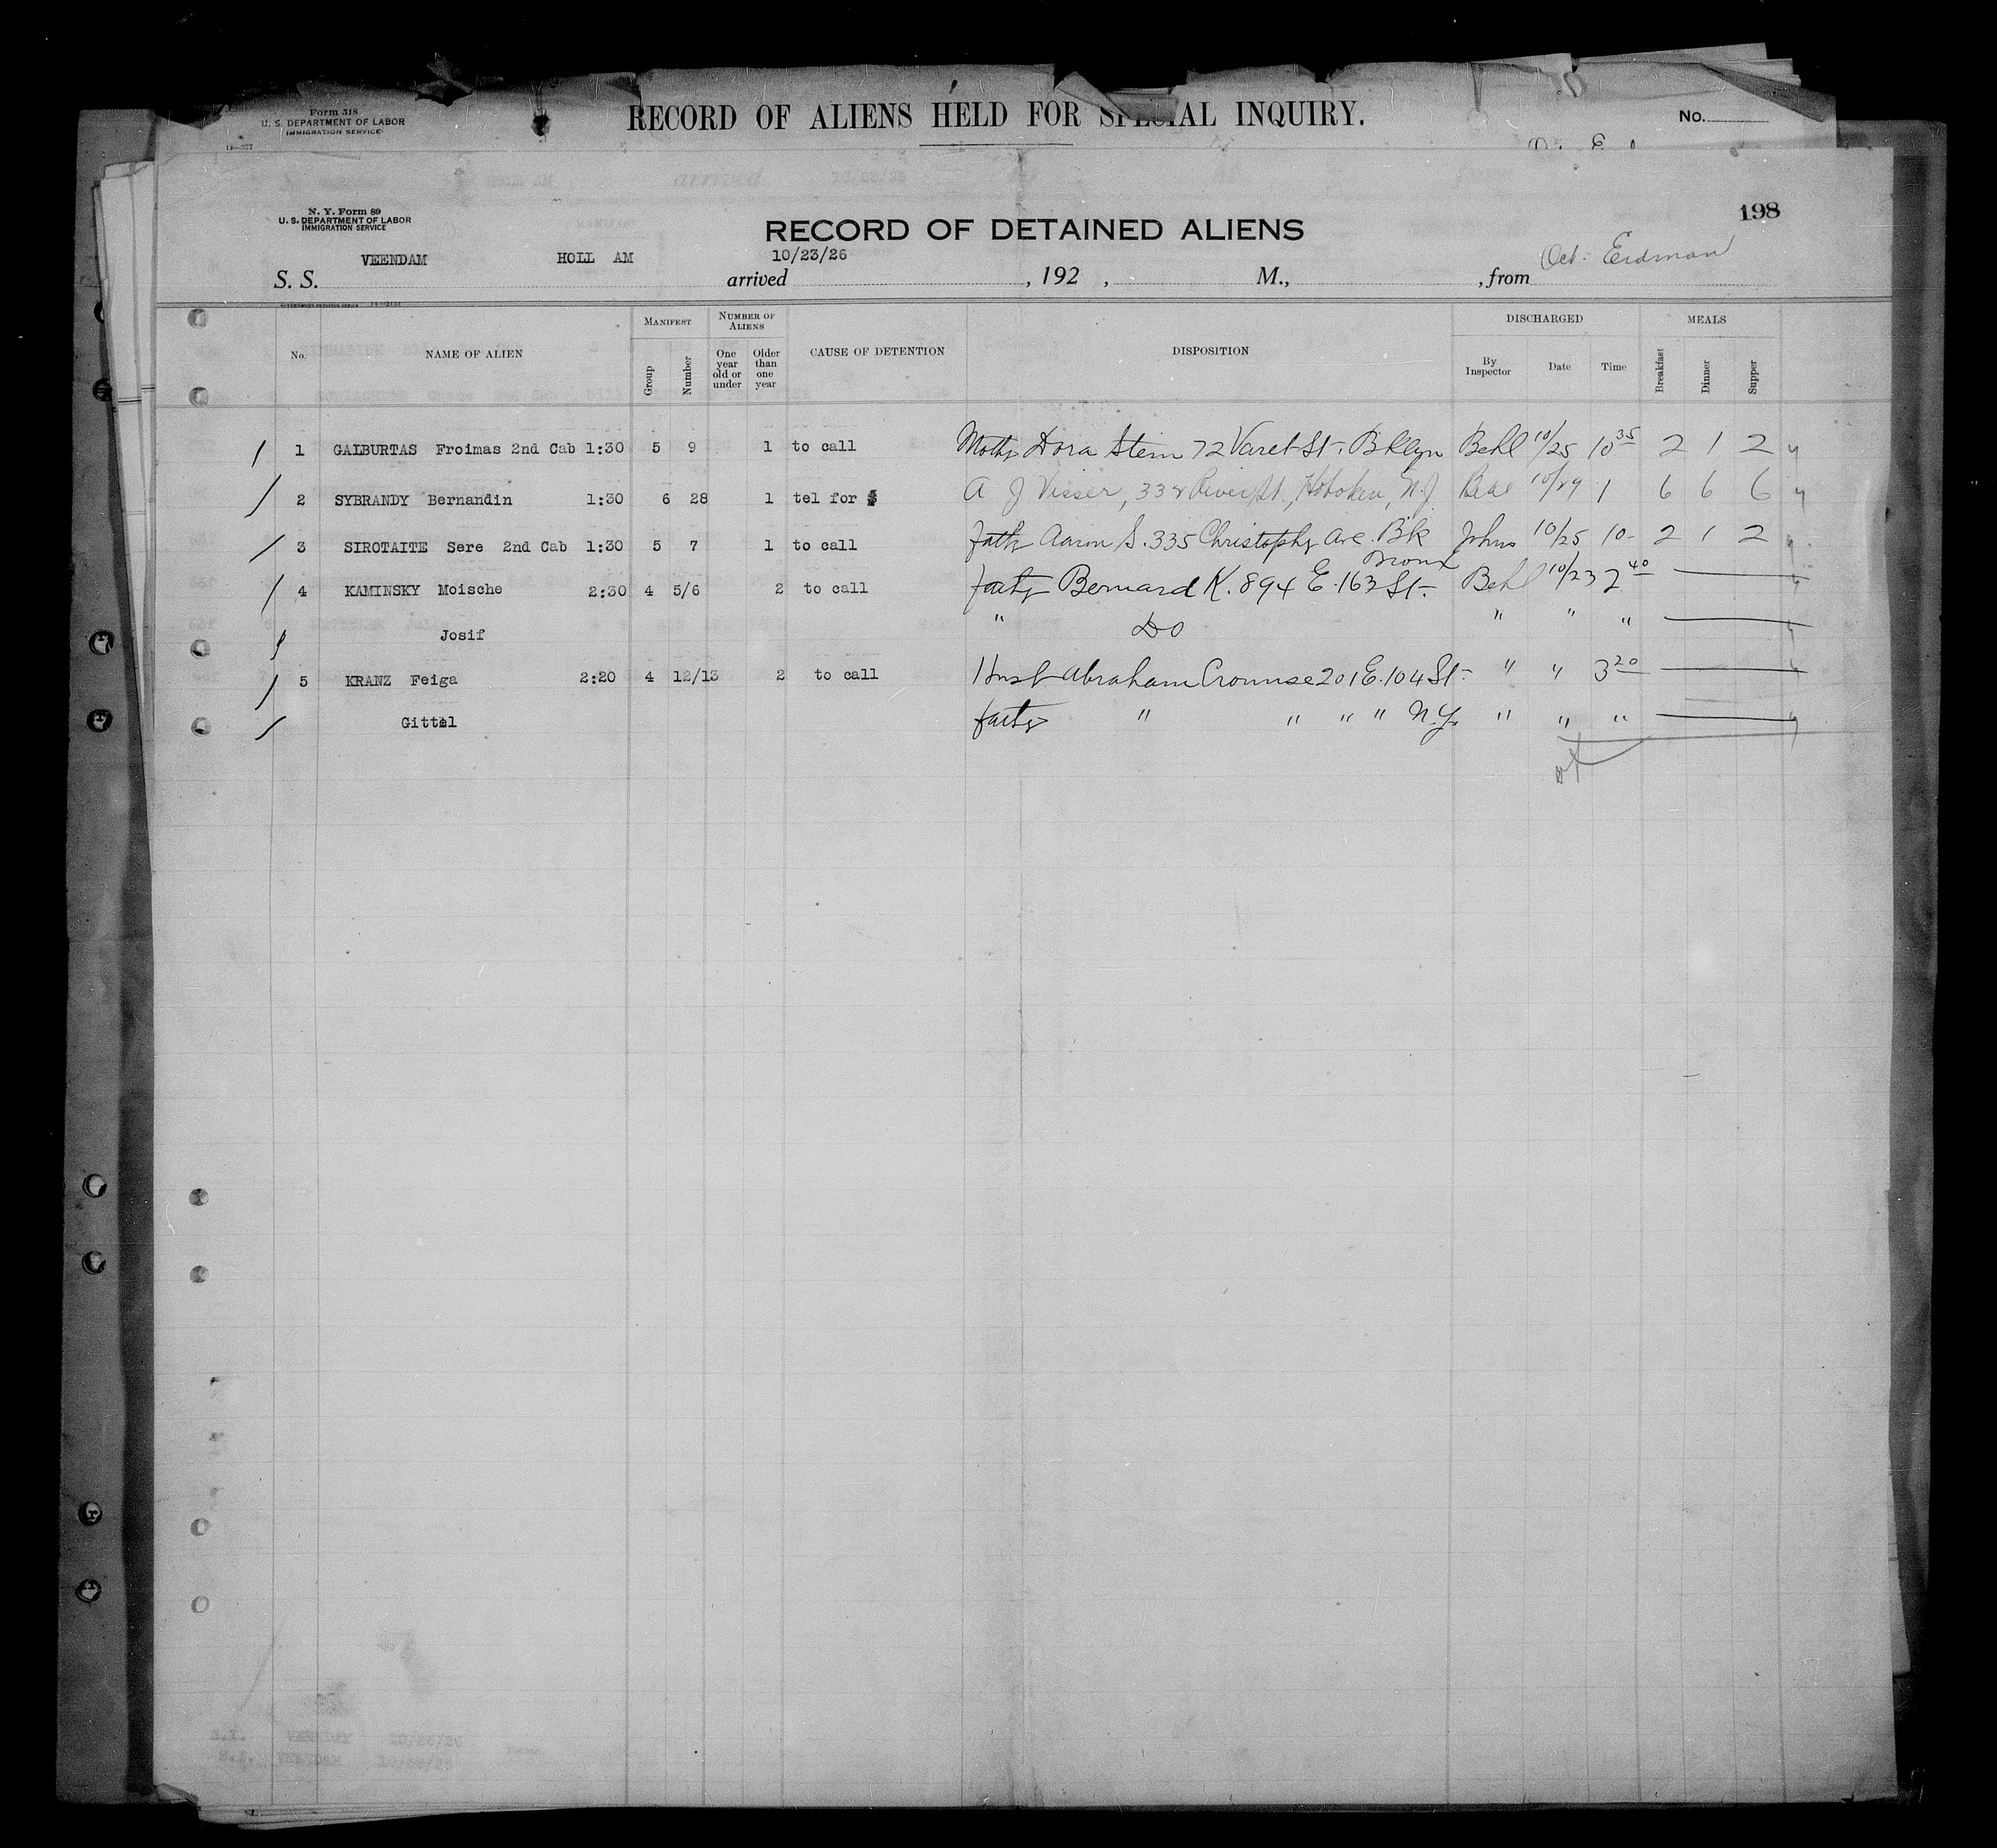 Form 518
U. S. DEPARTMENT OF LABOR
IMMIGRATION SERVICE
14—377
RECORD OF ALIENS HELD FOR SPECIAL INQUIRY.
No.
N. Y. Form 89
U. S. DEPARTMENT OF LABOR
IMMIGRATION SERVICE
198
RECORD OF DETAINED ALIENS
VEENDAM HOLL AM 10/23/26 Oct. Erdman
S. S. arrived , 192 , M., , from
No. NAME OF ALIEN MANIFEST Group Number NUMBER OF ALIENS One year old or under Older than one year CAUSE OF DETENTION DISPOSITION DISCHARGED By Inspector Date Time MEALS Breakfast Dinner Supper
1 GALBURTAS Froimas 2nd Cab 1:30 5 9 1 to call Moth Dora Stern 72 Varet St. Bklyn Behl 10/25 10 35 2 1 2
2 SYBRANDY Bernandin 1:30 6 28 1 tel for A J Visser, River St., Hoboken, N.J. 10/29 1 6 6 6
3 SIROTAITE Sere 2nd Cab 1:30 5 7 1 to call fath Aaron S. 335 Christopher Ave. Bk Johns 10/25 10- 2 1 2
4 KAMINSKY Moische 2:30 4 5/6 2 to call fath Bernard K. 894 E. 163 St. Bronx Behl 10/23 2 40
Josif " DO " " "
5 KRANZ Feiga 2:20 4 12/13 2 to call Husb Abraham Crounse 201 E. 104 St. " " 3 20
Gittel fath " " " " N.Y. " " "